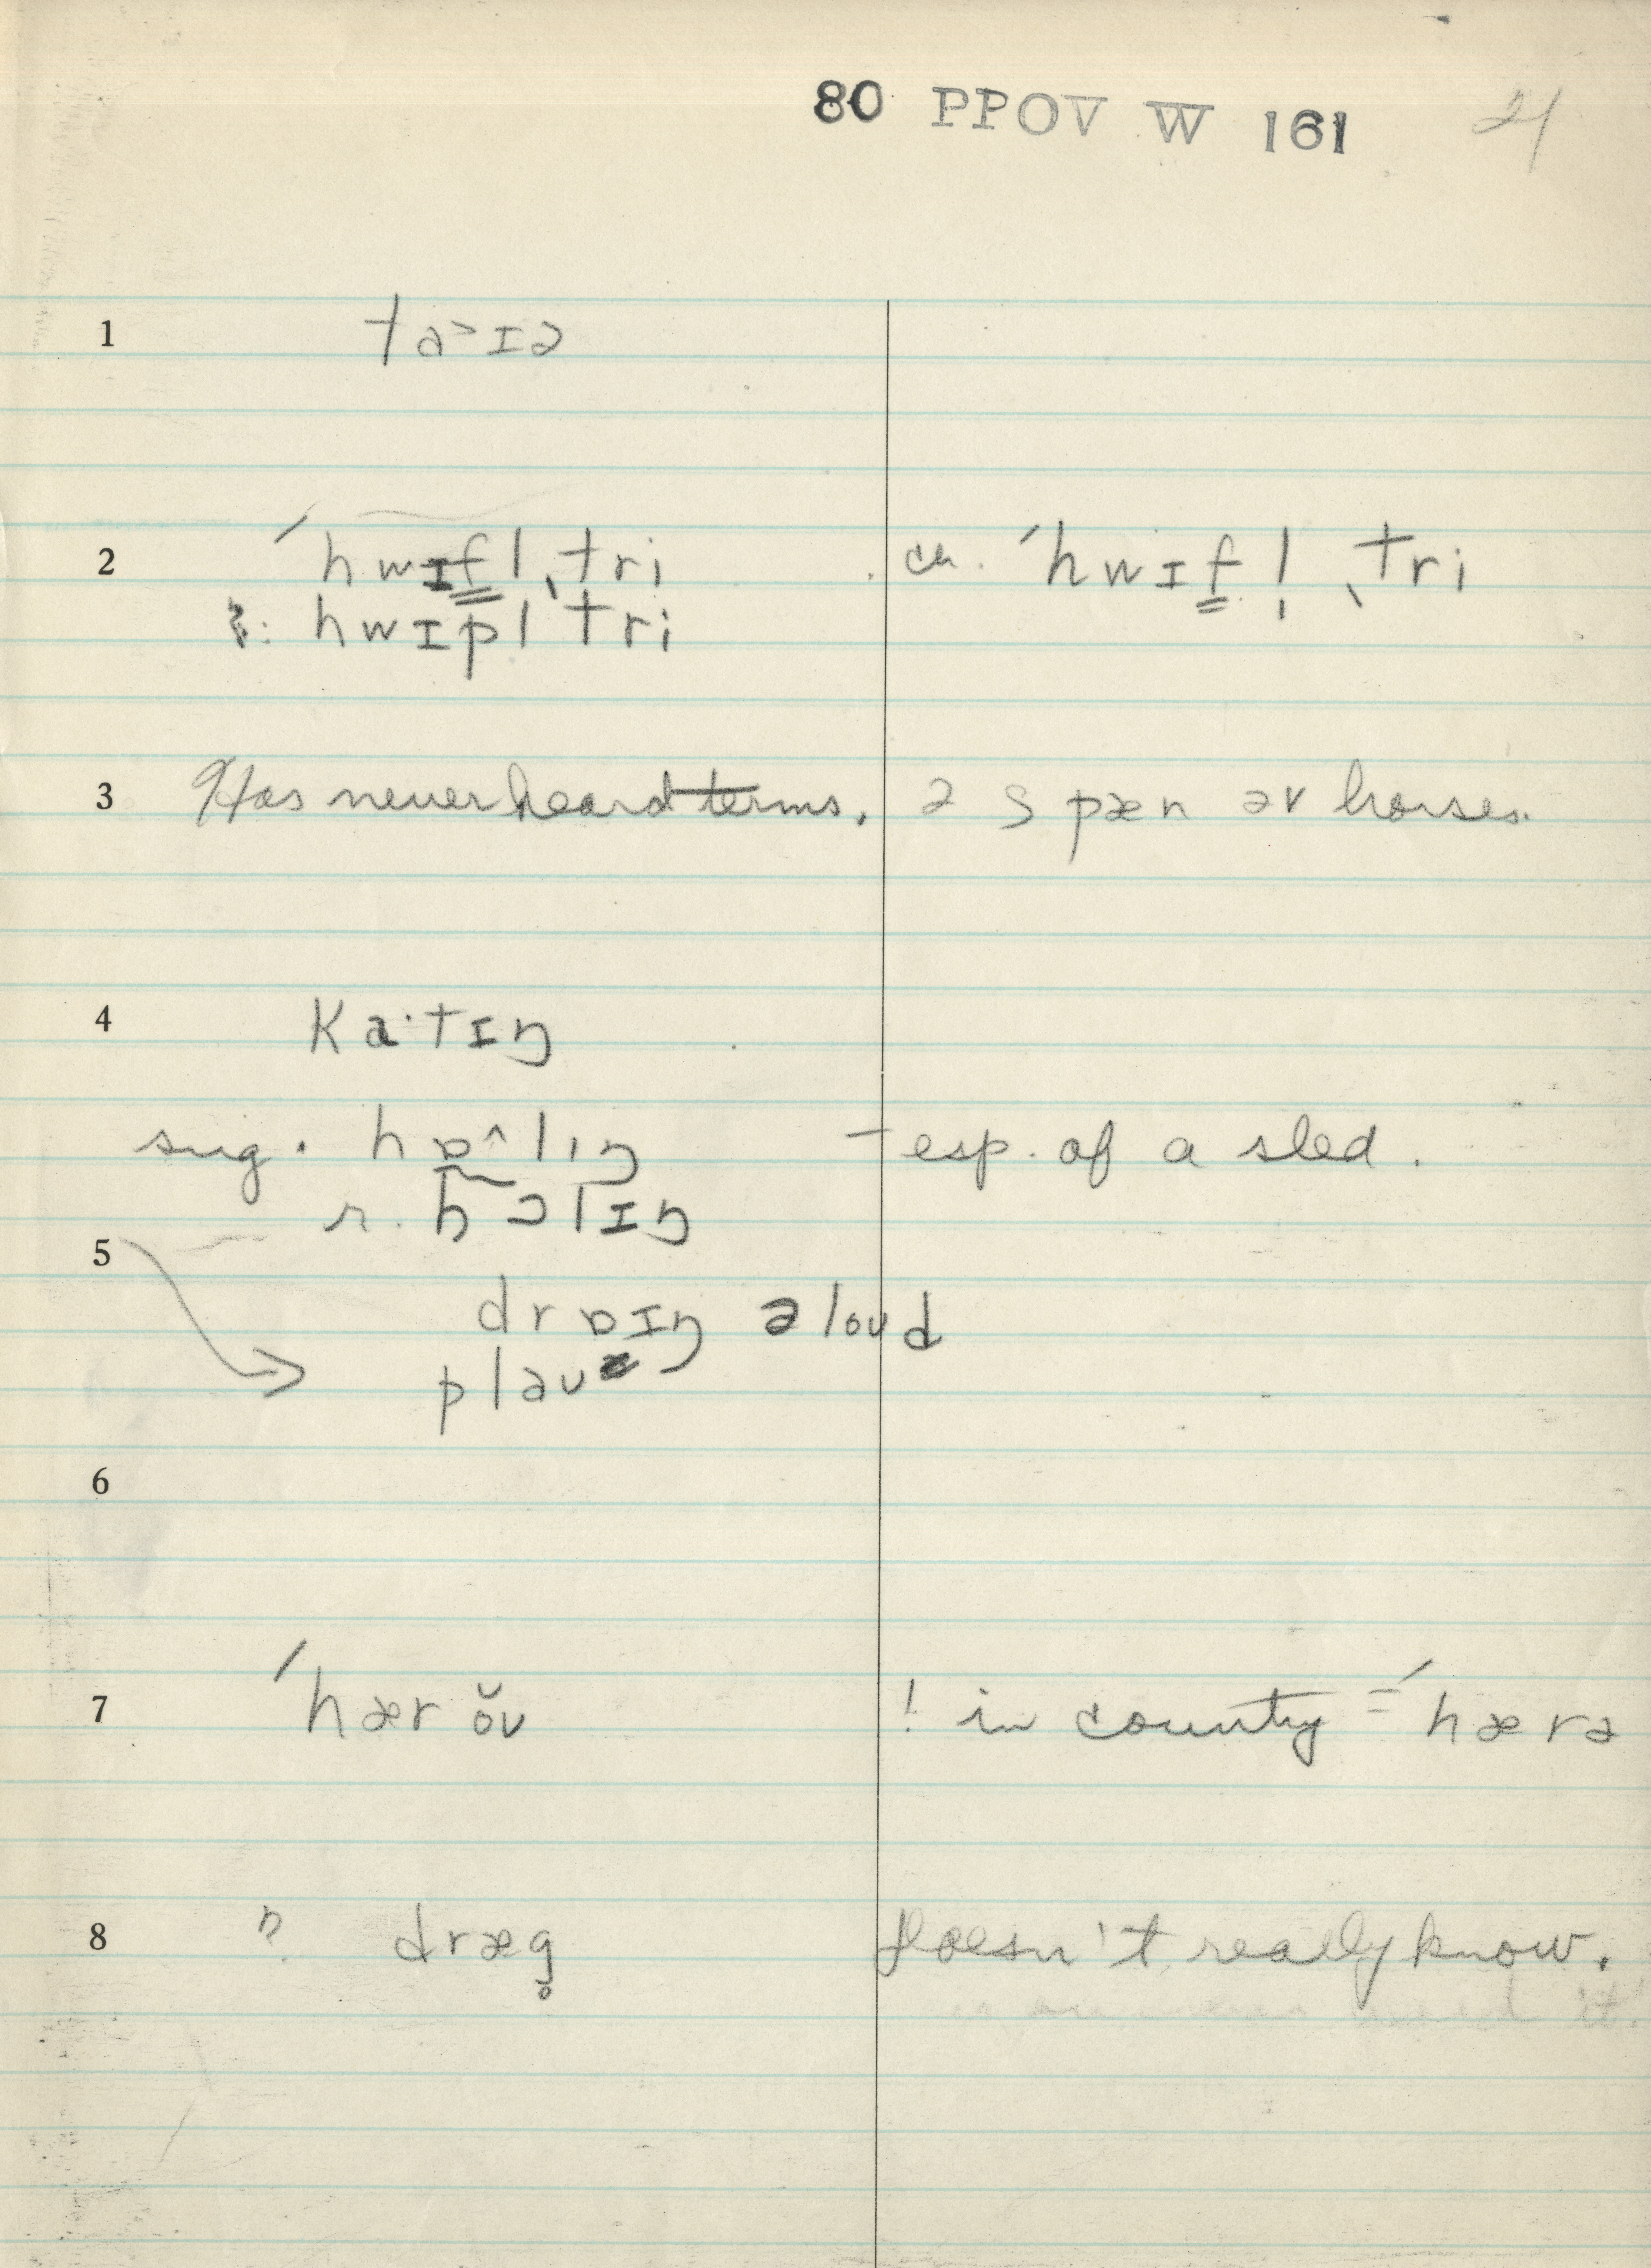 80 PPOV W 161 21
1 ta˃ɪə
2 ˊhwɪf̳l ˎtri ch. ˊhwɪf̳l̩ ˎtri
hwɪpl tri
3 Has never heard terms. ə spæn əv horses.
4 kaˑtɪŋ
sug. hɒ^lɪŋ – esp. of a sled.
r. hɔlɪŋ
5
drɒɪŋ ə loud
plaʊ
6
7 ˊhær ŏʊ ! in country = ˊhærə
8 dræg̥ Doesn't really know.